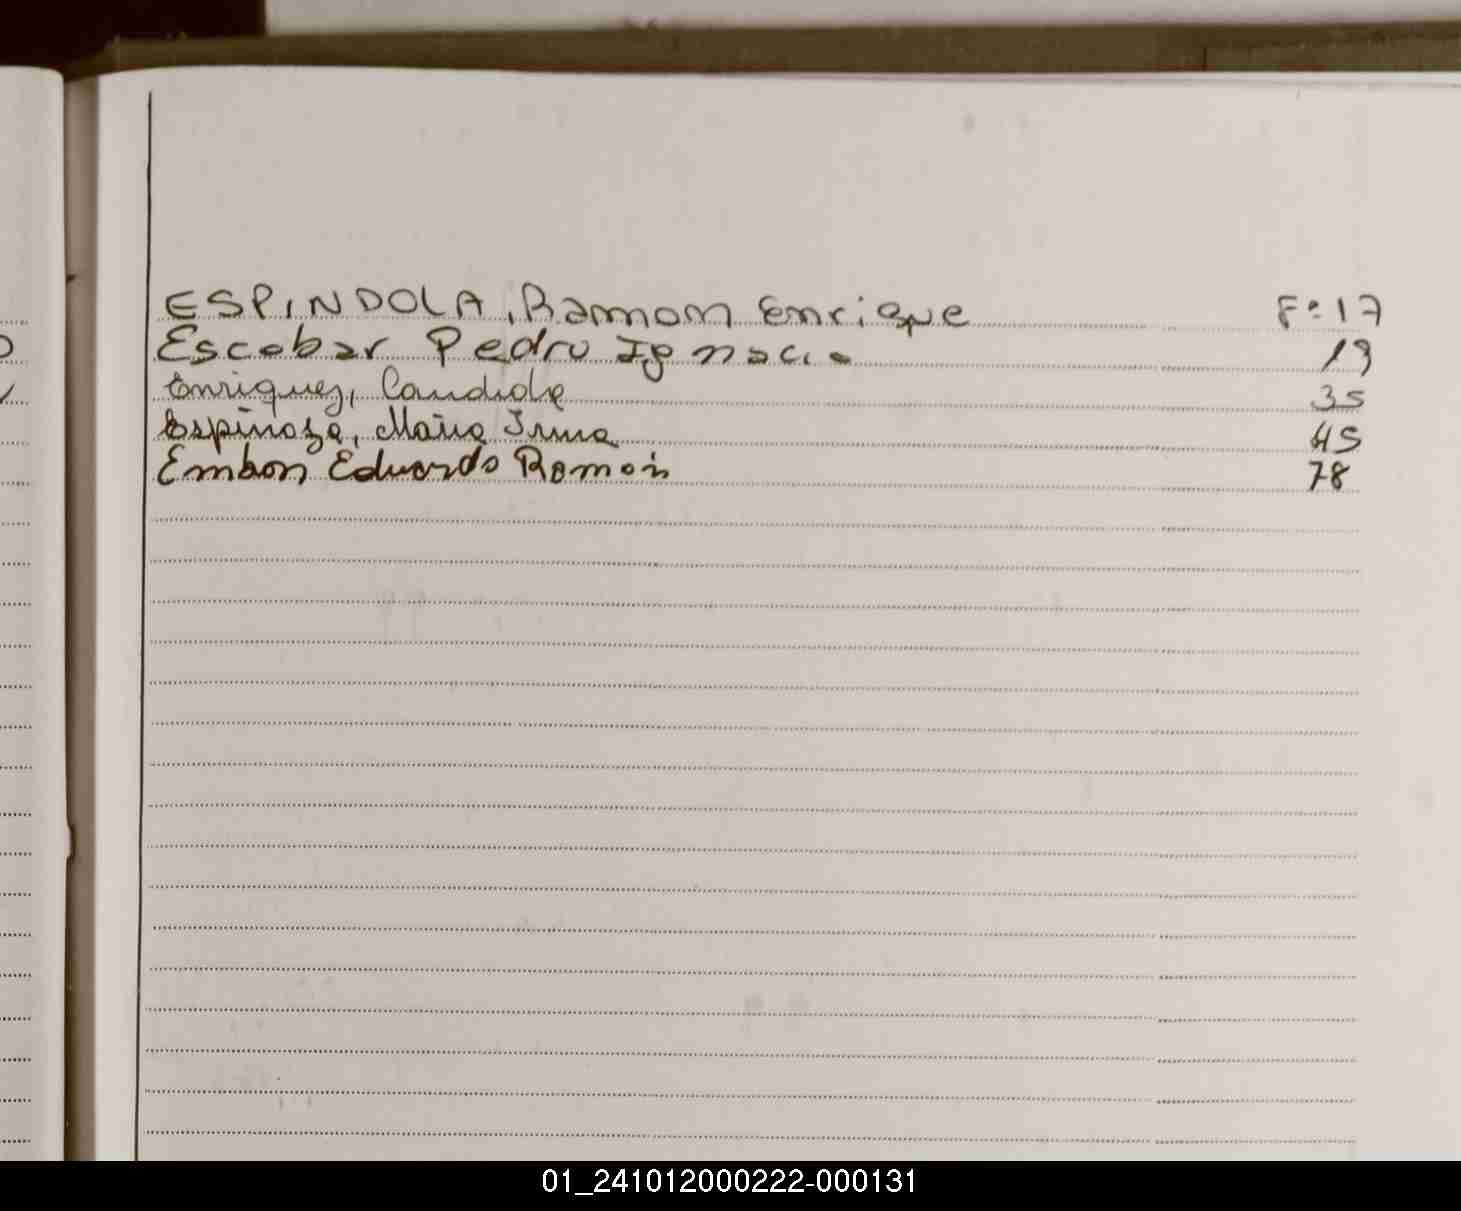 ESPINDOLA, Ramon Enrique F:17
Escobar Pedro Ignacio 19
Enriquez, Candida 35
Espinoza, Maria Irma 45
Embon Eduardo Ramon 78
01_241012000222-000131